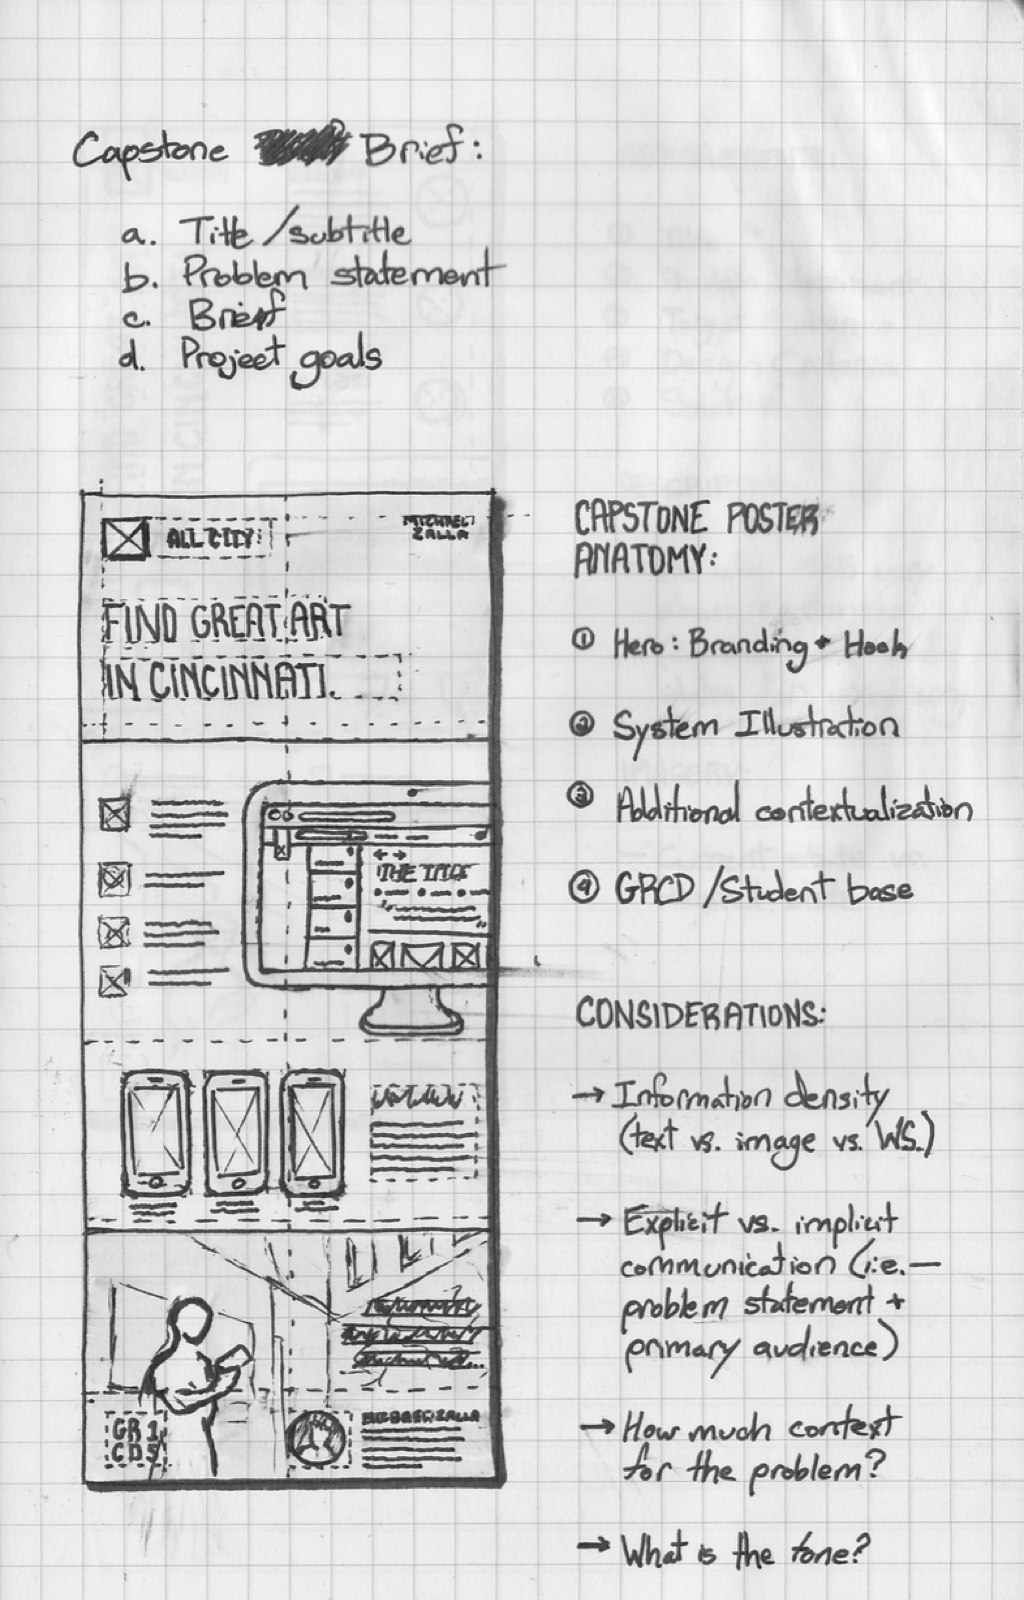 Capstone Brief:
a. Title/subtitle
b. Problem statement
c. Brief
d. Project goals
ALL CITY
MICHAEL
ZALLA
FIND GREAT ART
IN CINCINNATI.
THE TITLE
GR1
CD5
CAPSTONE POSTER
ANATOMY:
① Hero: Branding + Hook
② System Illustration
③ Additional contextualization
④ GRCD/Student base
CONSIDERATIONS:
→ Information density
(text vs. image vs. WS.)
→ Explicit vs. implicit
communication (i.e.—
problem statement +
primary audience)
→ How much context
for the problem?
→ What is the tone?